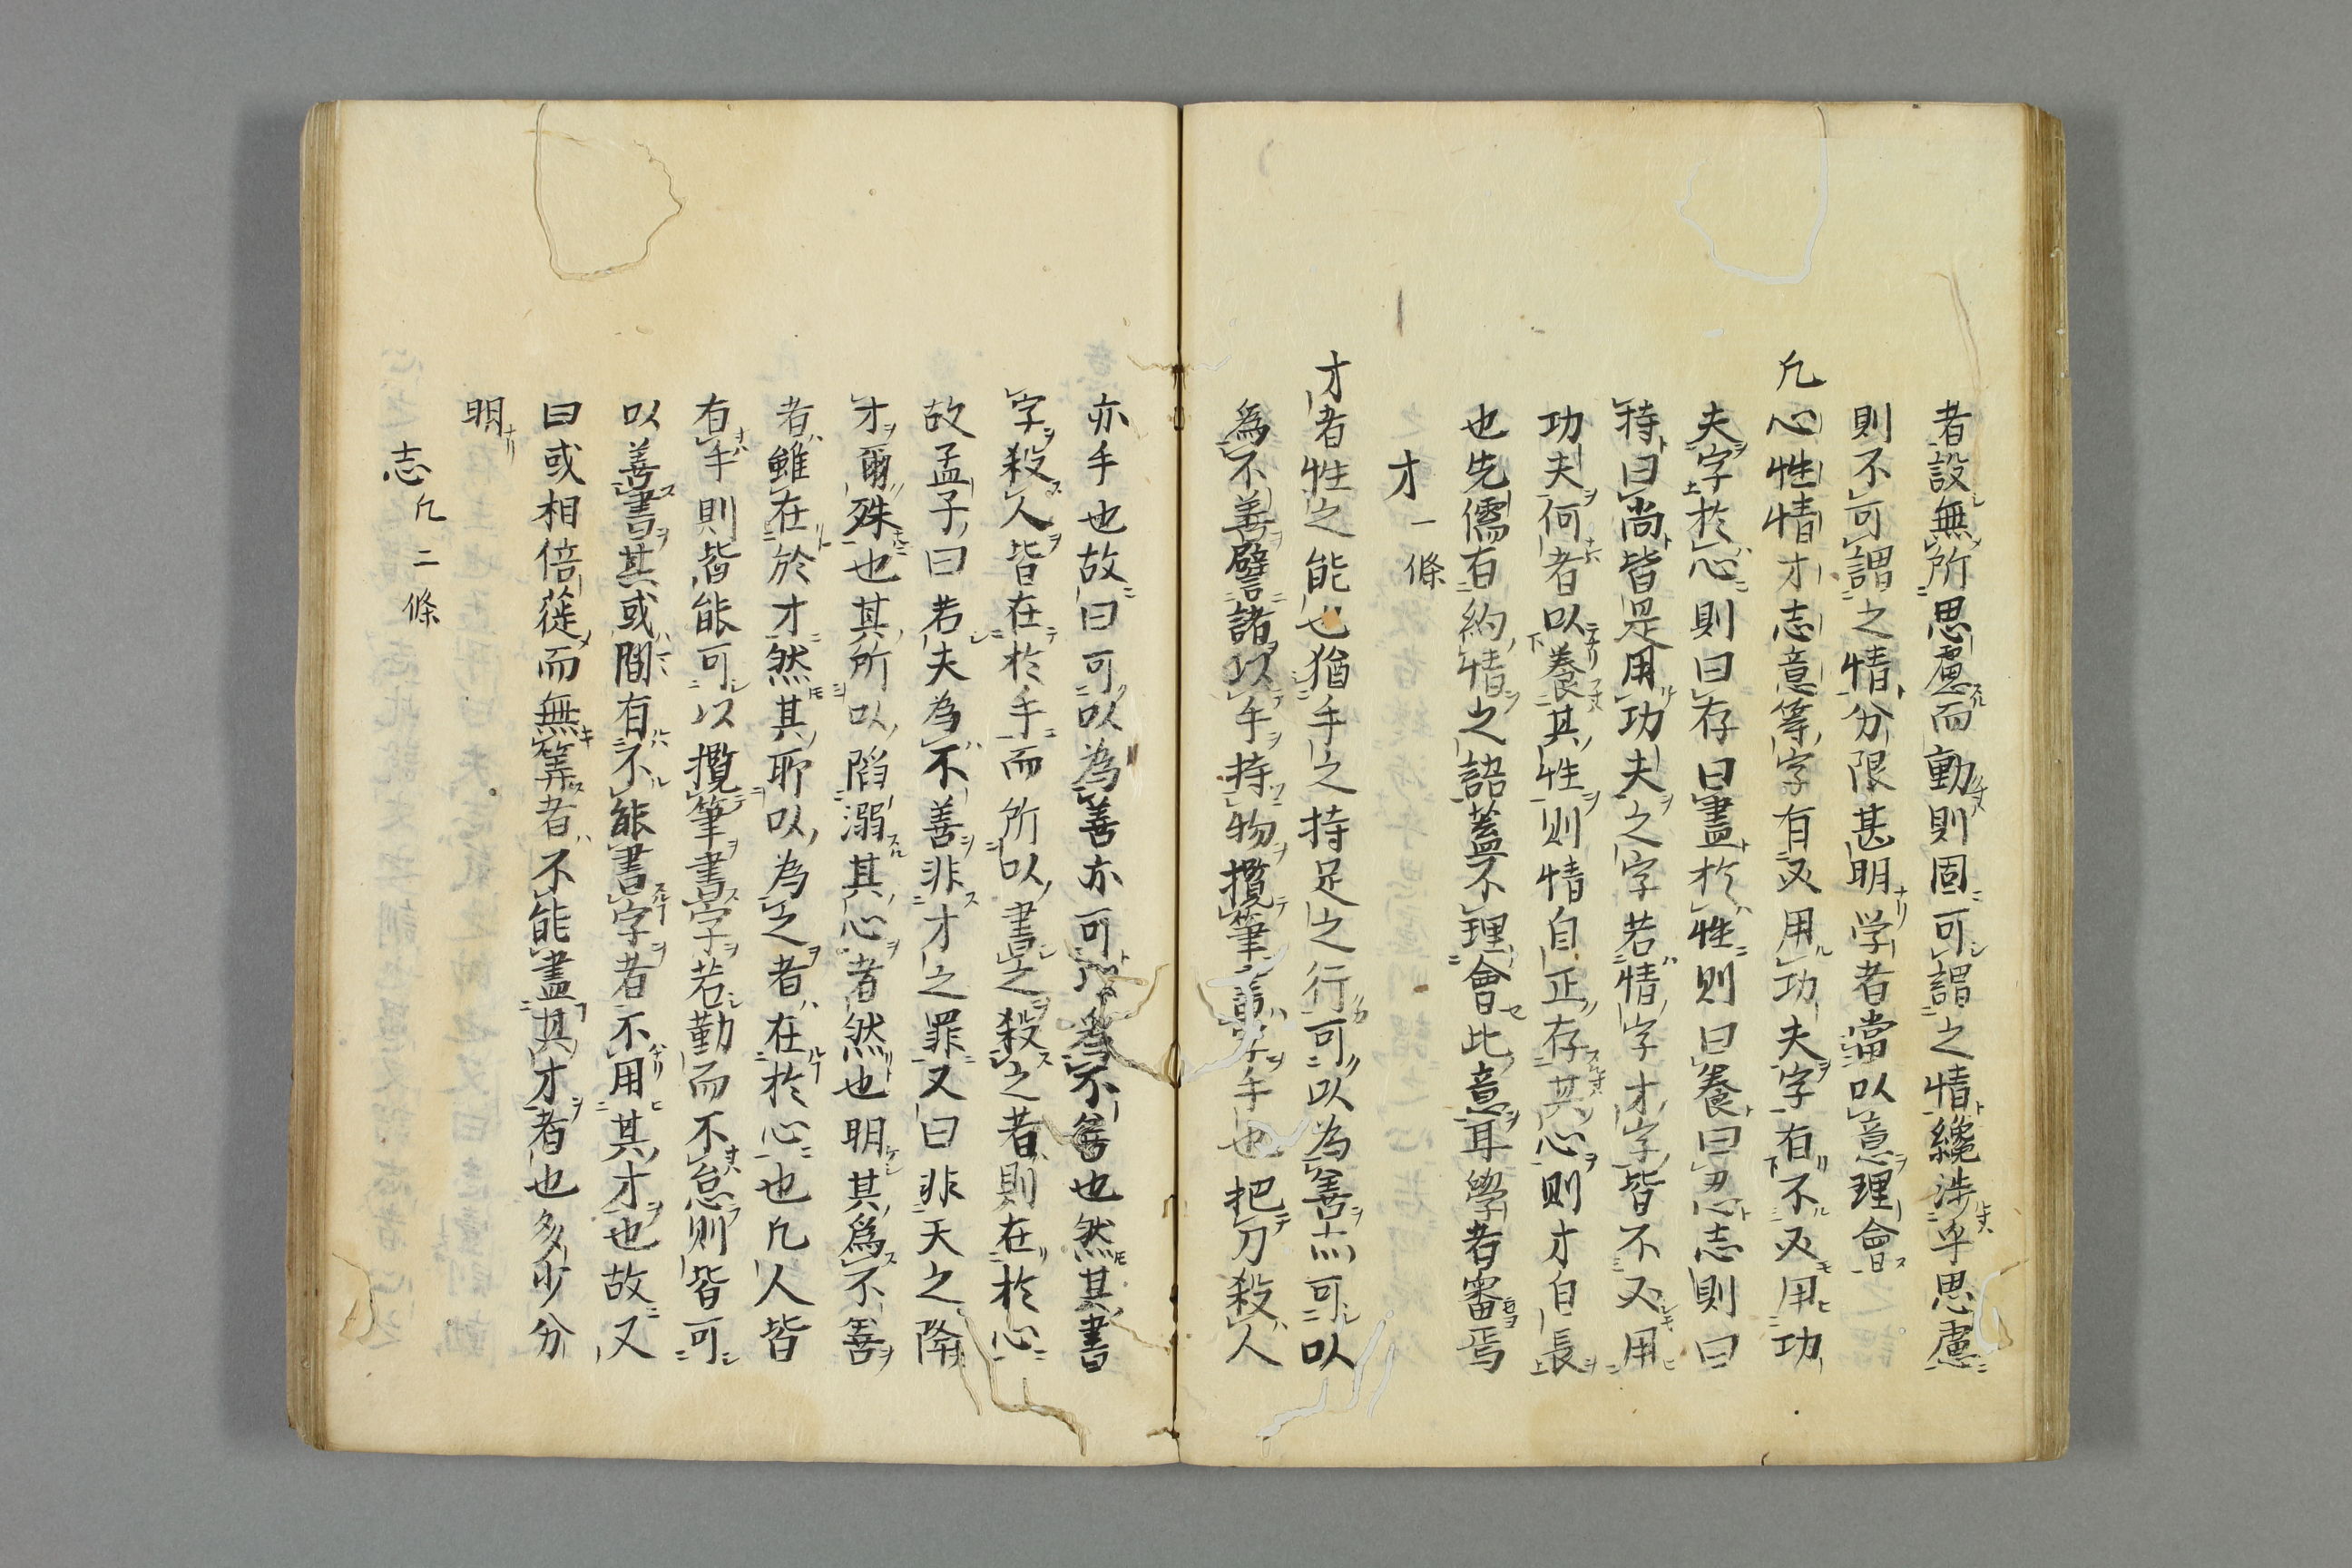 者設無所思慮而動則固可謂之情纔涉乎思慮
則不可謂之情分限甚明学者當以意理會
凢心性情才志意等字有又用功夫字有不又用功
夫字於心則曰存曰盡於性則曰養曰忍志則曰
持曰尚皆是用功夫之字若情字才字皆不又用
功夫何者以養其性則情自正存其心則才自長
也先儒有約情之語蓋不理會此意耳學者審焉
才一條
才者性之能也猶手之持足之行可以為善亦可以
為不善譬諸以手持物攬筆書字手也把刀殺人
亦手也故曰可以為善亦可以為不善也然其書
字殺人皆在於手而所以書之殺之者則在於心
故孟子曰若夫為不善非才之罪又曰非天之降
才爾殊也其所以陷溺其心者然也明其爲不善
者雖在於才然其所以為之者在於心也凢人皆
有手則皆能可以攬筆書字若勤而不怠則皆可
以善書其或間有不能書字者不用其才也故又
曰或相倍蓰而無筭者不能盡其才者也多少分
明
志凢二條